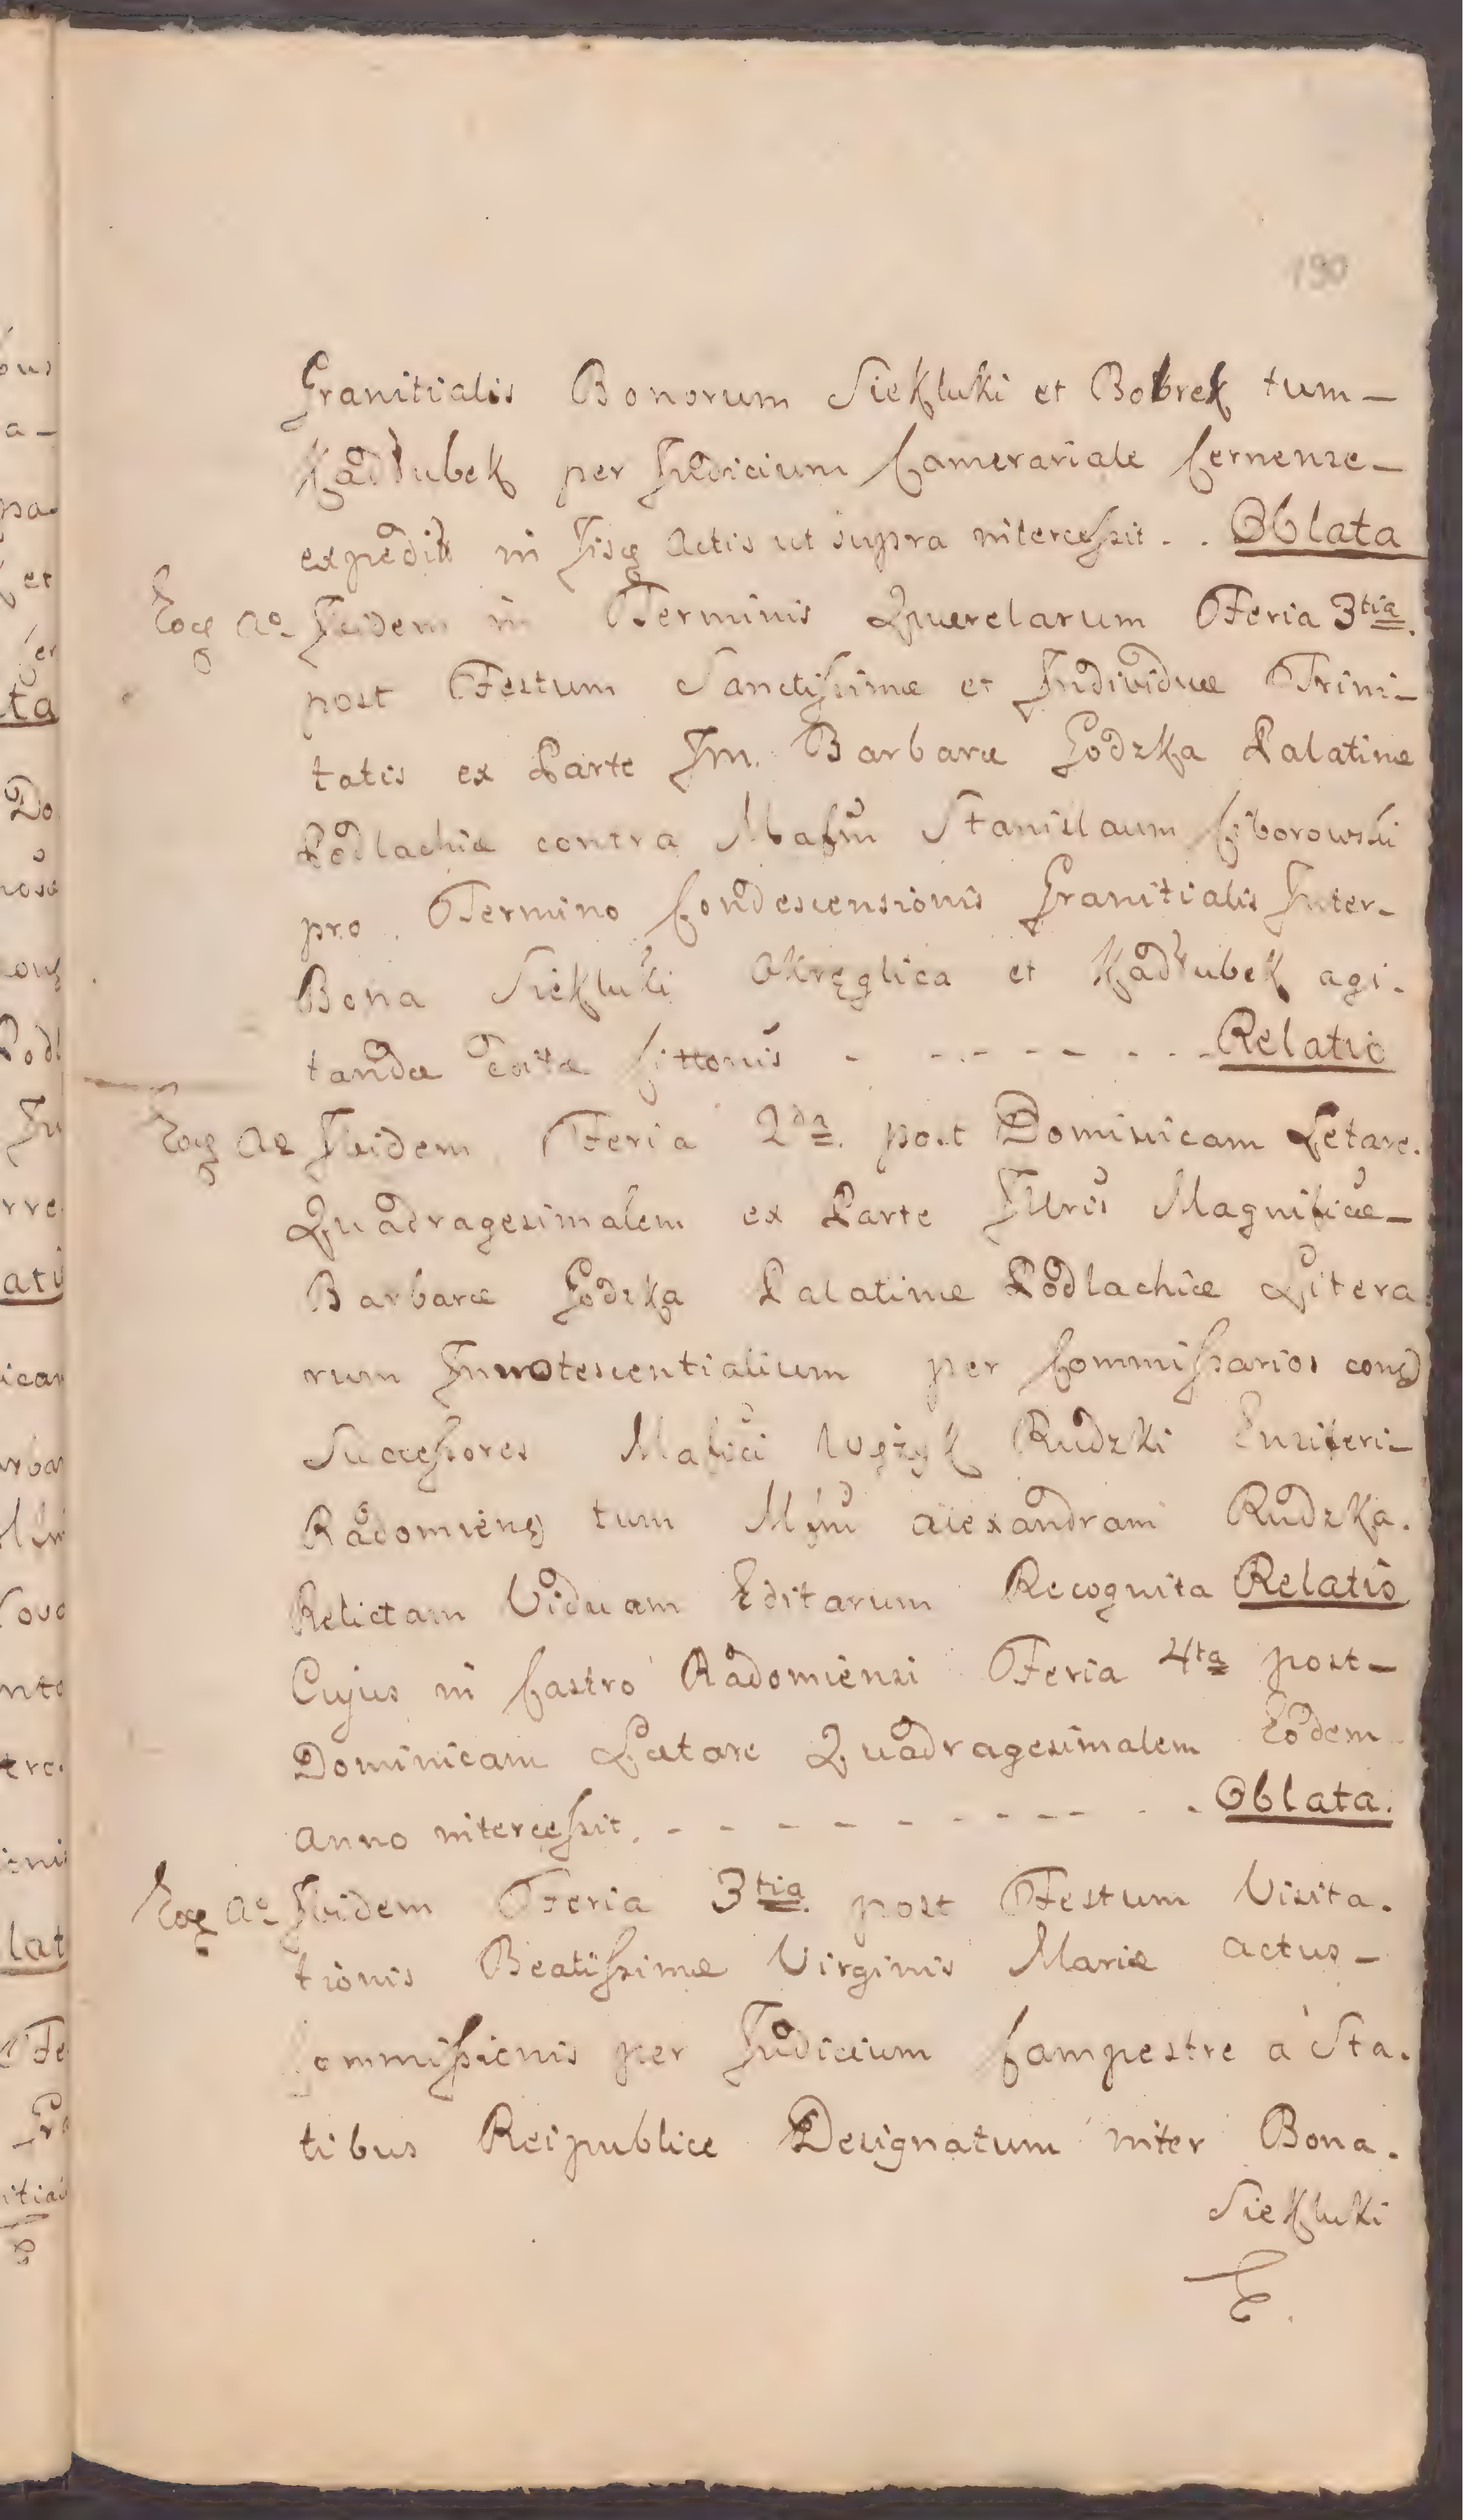 190
Granitialis Bonorum Siekluki et Bobrek tum -
Kadłubek per Judicium Camerariale Cernense -
expedit in Jisq Actis ut supra intercessit . . Oblata
Eoq Ao Ibidem in Terminis Querelarum Feria 3tia.
post Festum Sanctissimæ et Individuæ Trini-
tatis ex Parte Jm. Barbaræ Godzka Palatinæ
Podlachiæ contra Mafm Stanislaum Ciborowski
pro Termino Condescensionis Granitialis Inter-
Bona Siekluki Okręglica et Kadłubek agi.
tandæ Cittonis - - - - - - Relatio
Eoq Ao Ibidem Feria 2da. post Dominicam Letare.
Quadragesimalem ex Parte Illris Magnificæ -
Barbaræ Godzka Palatinæ Podlachiæ Litera
rum Innotescentialium per Commissarios cong
Successores Mafici Rudzki Ensiferi-
Radomieng tum Mfm Alexandram Rudzka.
Relictam Viduam Editarum Recognita Relatio
Cujus in Castro Radomiensi Feria 4ta post -
Dominicam Lætare Quadragesimalem Eodem
Anno intercessit. - - - - - - - - - - Oblata.
Eoq Ao Ibidem Feria 3tia. post Festum Visita.
tionis Beatissimæ Virginis Mariæ Actus -
Commissionis per Judicium Campestre a Sta.
tibus Reipublicæ Designatum inter Bona.
Siekluki